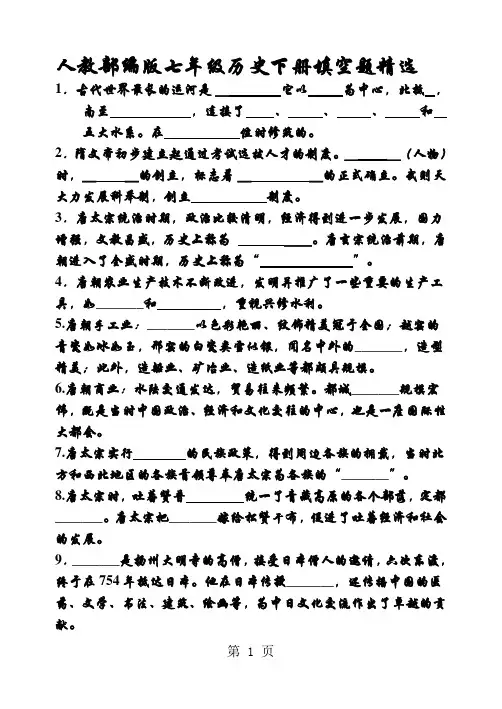 人教部编版七年级历史下册填空题精选
1．古代世界最长的运河是__________它以_____为中心，北抵_，
南至____________，连接了____、_____、_____、_____和__
五大水系。在___________位时修筑的。
2．隋文帝初步建立起通过考试选拔人才的制度。________（人物）
时，________的创立，标志着____________的正式确立。武则天
大力发展科举制，创立___________制度。
3．唐太宗统治时期，政治比较清明，经济得到进一步发展，国力
增强，文教昌盛，历史上称为___________。唐玄宗统治前期，唐
朝进入了全盛时期，历史上称为“_____________”。
4．唐朝农业生产技术不断改进，发明并推广了一些重要的生产工
具，如_______和_________，重视兴修水利。
5.唐朝手工业：_______以色彩艳丽、纹饰精美冠于全国；越窑的
青瓷如冰如玉，邢窑的白瓷类雪似银，闻名中外的_______，造型
精美；此外，造船业、矿冶业、造纸业等都颇具规模。
6.唐朝商业：水陆交通发达，贸易往来频繁。都城_______规模宏
伟，既是当时中国政治、经济和文化交往的中心，也是一座国际性
大都会。
7.唐太宗实行________的民族政策，得到周边各族的拥戴，当时北
方和西北地区的各族首领尊奉唐太宗为各族的“_______”。
8.唐太宗时，吐蕃赞普________统一了青藏高原的各个部落，定都
_______。唐太宗把_______嫁给松赞干布，促进了吐蕃经济和社会
的发展。
9．_______是扬州大明寺的高僧，接受日本僧人的邀请，六次东渡，
终于在 754 年抵达日本。他在日本传授_______，还传播中国的医
药、文学、书法、建筑、绘画等，为中日文化交流作出了卓越的贡
献。
第 1 页